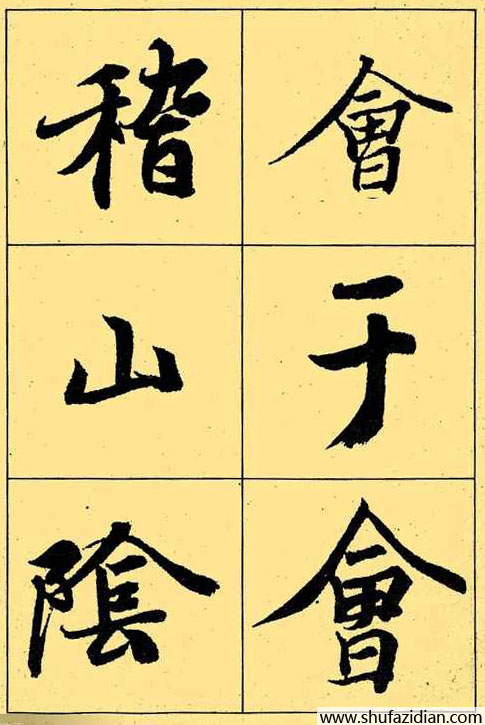 會于會
稽山陰
www.shufazidian.com